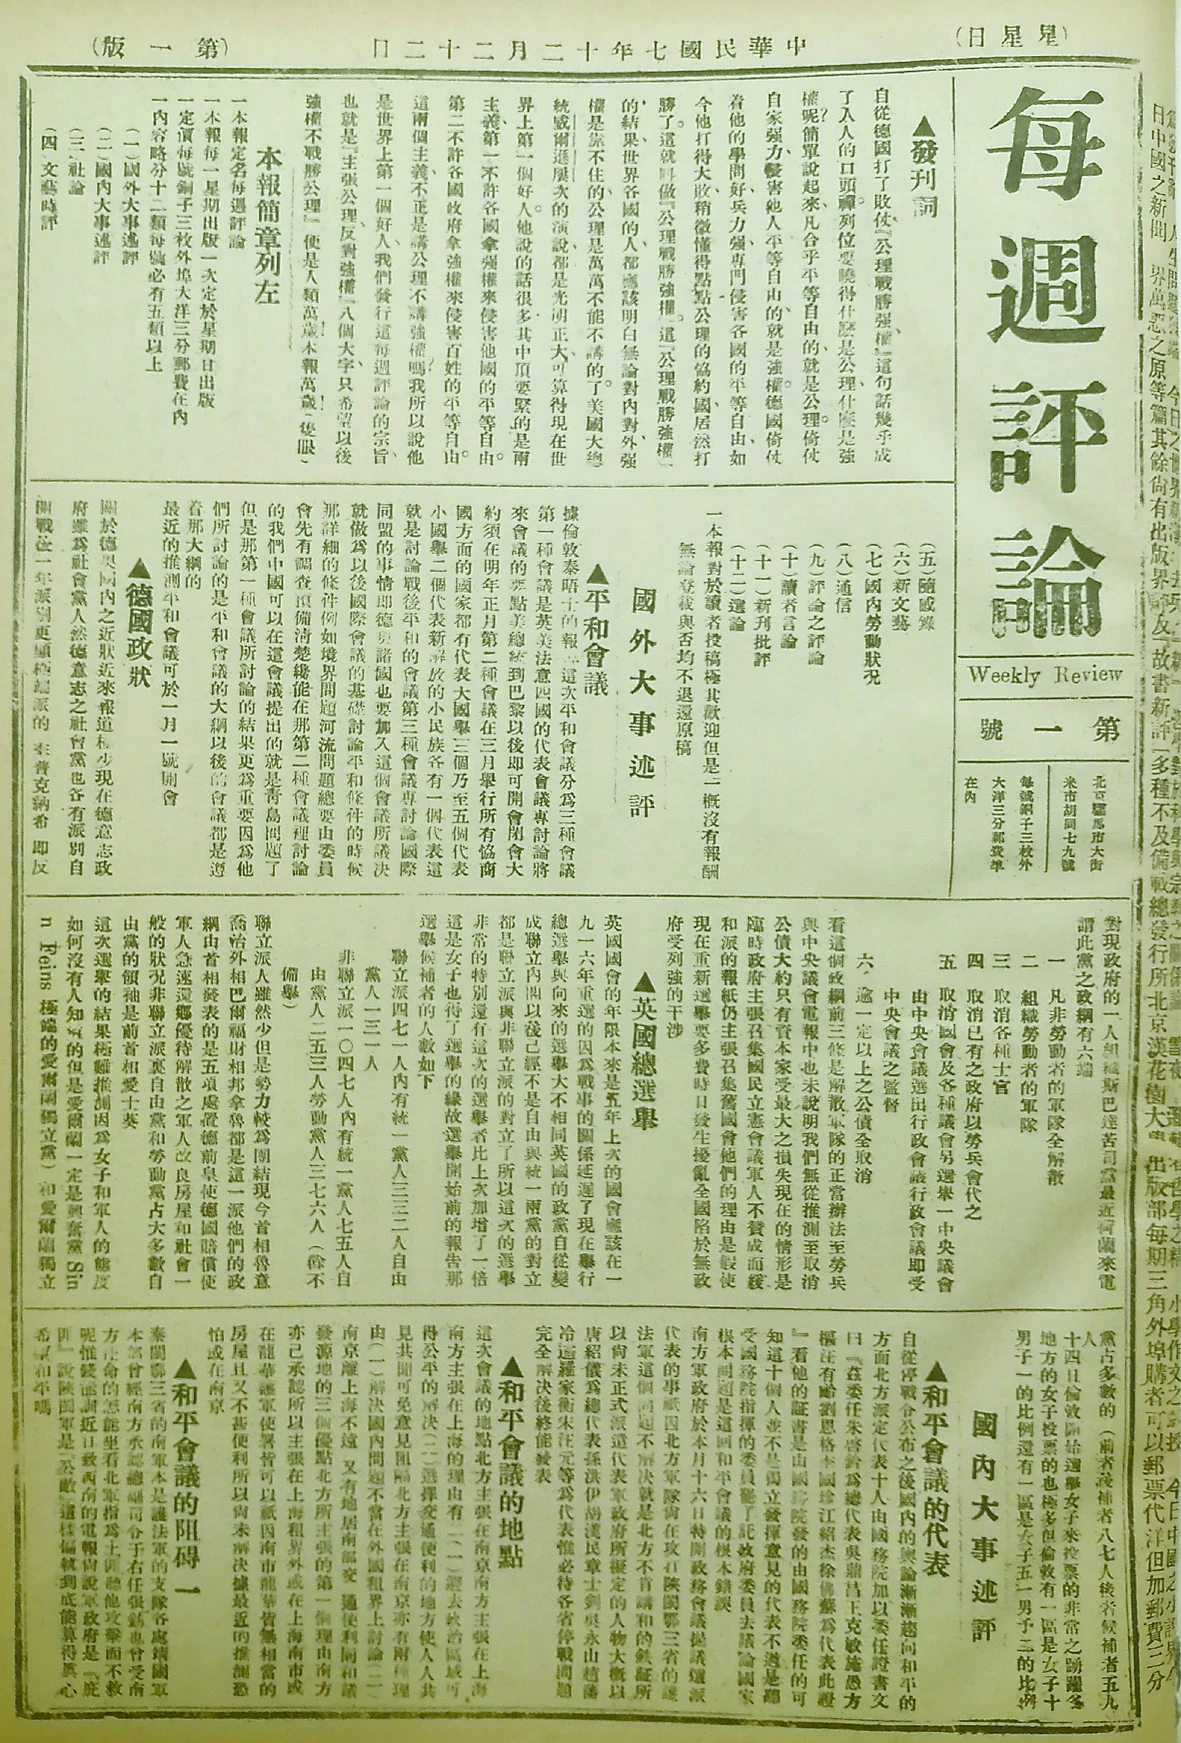 (日星期)
中華民國七年十二月二十二日
(第一版)
每週評論
Weekly Review
第一號
北京騾馬市大街
米市胡同七九號
每號銅子三枚外
大洋三分郵費準
在內
▲發刊詞
自從德國打了敗仗『公理戰勝強權』這句話幾乎成
了人人的口頭禪列位要曉得什麼是公理什麼是強
權呢簡單說起來凡合乎平等自由的就是公理倚仗
自家強力侵害他人平等自由的就是強權德國倚仗
着他的學問好兵力強專門侵害各國的平等自由如
今他打得大敗稍微懂得點點公理的協約國居然打
勝了這就叫做『公理戰勝強權』這『公理戰勝強權』
的結果世界各國的人都應該明白無論對內對外強
權是靠不住的公理是萬萬不能不講的了美國大總
統威爾遜屢次的演說都是光明正大可算得現在世
界上第一個好人他說的話很多其中頂要緊的是兩
主義第一不許各國拿強權來侵害他國的平等自由
第二不許各國政府拿強權來侵害百姓的平等自由
這兩個主義不正是講公理不講強權嗎我所以說他
是世界上第一個好人我們發行這每週評論的宗旨
也就是『主張公理反對強權』八個大字只希望以後
強權不戰勝公理』便是人類萬歲本報萬歲(隻眼)
本報簡章列左
一本報定名每週評論
一本報每一星期出版一次定於星期日出版
一定價每號銅子三枚外埠大洋三分郵費在內
一內容略分十二類每號必有五類以上
(一)國外大事述評
(二)國內大事述評
(三)社論
(四)文藝時評
(五)隨感錄
(六)新文藝
(七)國內勞動狀況
(八)通信
(九)評論之評論
(十)讀者言論
(十一)新刊批評
(十二)選論
一本報對於讀者投稿極其歡迎但是一概沒有報酬
無論登載與否均不退還原稿
國外大事述評
▲平和會議
據倫敦泰晤士的報這次平和會議分爲三種會議
第一種會議是英美法意四國的代表會議專討論將
來會議的要點美總統到巴黎以後即可開會閉會大
約須在明年正月第二種會議在三月舉行所有協商
國方面的國家都有代表大國舉三個乃至五個代表
小國舉二個代表新解放的小民族各有一個代表這
就是討論戰後平和的會議第三種會議專討論國際
同盟的事情即德奧諸國也要加入這個會議所議決
就做爲以後國際會議的基礎討論平和條件的時候
那詳細的條件例如境界問題河流問題總要由委員
會先有調查預備清楚纔能在那第二種會議裡討論
的我們中國可以在這會議提出的就是青島問題了
但是那第一種會議所討論的結果更爲重要因爲他
們所討論的是平和會議的大綱以後的會議都是遵
着那大綱的
最近的推測平和會議可於一月一號開會
▲德國政狀
關於德奧國內之近狀近來報道極少現在德意志政
府雖爲社會黨人然德意志之社會黨也各有派別自
開戰後一年派別更顯極端派的 李普克納希 即反
對現政府的一人組織斯巴達苦司黨最近荷蘭來電
謂此黨之政綱有六端
一 凡非勞動者的軍隊全解散
二 組織勞動者的軍隊
三 取消各種士官
四 取消已有之政府以勞兵會代之
五 取消國會及各種議會另選舉一中央議會
由中央會議選出行政會議行政會議即受
中央會議之監督
六 逾一定以上之公債全取消
看這個政綱前三條是解散軍隊的正當辦法至勞兵
與中央議會電報中也未說明我們無從推測至取消
公債大約只有資本家受最大之損失現在的情形是
臨時政府主張召集國民立憲會議軍人不贊成而緩
和派的報紙仍主張召集舊國會他們的理由是假使
現在重新選舉要多費時日發生擾亂全國陷於無政
府受列強的干涉
▲英國總選舉
英國國會的年限本來是五年上次的國會應該在一
九一六年重選的因爲戰事的關係延遲了現在舉行
總選舉與向來的選舉大不相同英國的政黨自從變
成聯立內閣以後已經不是自由與統一兩黨的對立
都是聯立派與非聯立派的對立了所以這次的選舉
非常的特別還有這次的選舉者比上次加增了一倍
這是女子也得了選舉的緣故選舉開始前的報告那
選舉候補者的人數如下
聯立派四七一人內有統一黨人三三二人自由
黨人一三一人
非聯立派一〇四七人內有統一黨人七五人自
由黨人二五三人勞動黨人三七六人(餘不
備舉)
聯立派人雖然少但是勢力較爲團結現今首相魯意
喬治外相巴爾福財相邦拿魯都是這一派他們的政
綱由首相發表的是五項處置德前皇使德國賠償使
軍人急速還鄉優待解散之軍人改良房屋和社會一
般的狀況非聯立派裏自由黨和勞動黨占大多數自
由黨的領袖是前首相愛士葵
這次選舉的結果極難推測因爲女子和軍人的態度
如何沒有人知道的但是愛爾蘭一定是興奮黨 Sin
n Feins 極端的愛爾蘭獨立黨)和愛爾蘭獨立
黨占多數的(前者候補者八七人後者候補者五九
人
十四日倫敦開始選舉女子來投票的非常之踴躍各
地方的女子投票的也極多但倫敦有一區是女子十
男子一的比例還有一區是女子五一男子三的比例
國內大事述評
▲和平會議的代表
自從停戰令公布之後國內的輿論漸漸趨向和平的
方面北方派定代表十人由國務院加以委任證書文
曰『茲委任朱啓鈐爲總代表吳鼎昌王克敏施愚方
樞汪有齡劉恩格李國珍江紹杰徐佛蘇爲代表此證
』看他的証書是由國務院發的由國務院委任的可
知這十個人並不是獨立發揮意見的代表不過是聽
受國務院指揮的委員罷了託政府委員去議論國家
根本問題是這回和平會議的根本錯誤
南方軍政府於本月十六日特開政務會議提議選派
代表的事祇因北方軍隊尚在攻打陝閩鄂三省的護
法軍這個問題不解決就是北方不肯講和的鉄証所
以尚未正式派遣代表軍政府所擬定的人物大概以
唐紹儀爲總代表孫洪伊胡漢民章士釗吳永山趙藩
冷遹羅家衡宋汪元等爲代表惟必待各省停戰問題
完全解決後終能發表
▲和平會議的地點
這次會議的地點北方主張在南京南方主張在上海
南方主張在上海的理由有二(一)避去政治區域可
得公平的解決(二)選擇交通便利的地方使人人共
見共聞可免意見阻隔北方主張在南京亦有兩種理
由(一)解決國內問題不當在外國租界上討論(二)
南京離上海不遠又有地居南部交通便利同和議
發源地的三個優點北方所主張的第一個理由南方
亦已承認所以主張在上海租界外或在上海南市或
在龍華護軍使署皆可以祇因南市龍華皆無相當的
房屋且又不甚便利所以尚未解決據最近的推測恐
怕或在南京
▲和平會議的阻碍一
秦閩鄂三省的南軍本是護法軍的支隊各處靖國軍
本部曾經南方承認總司令于右任張鈁也曾受南
方任命的怎能坐看北軍指爲土匪聽他攻擊而不救
呢惟錢能訓近日致西南的電報尚說軍政府是『庇
匪』說陝閩軍是『公敵』這樣偏執到底能算得眞心
希望和平嗎